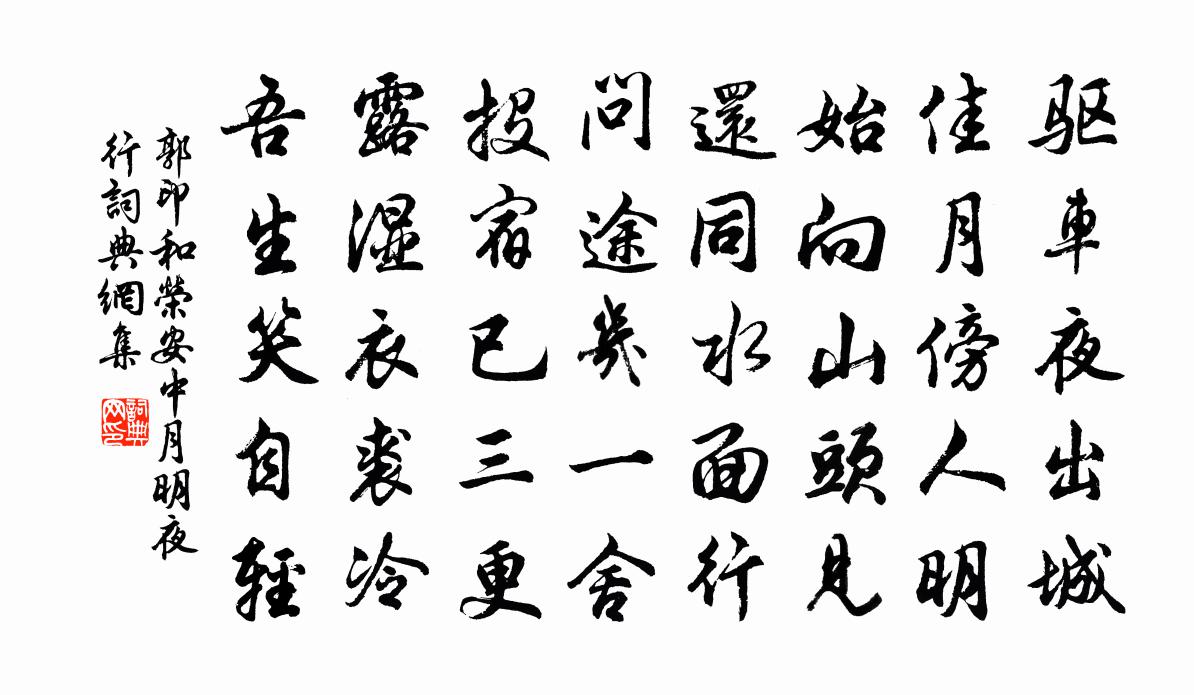 驱車夜出城
佳月傍人明
始向山頭見
還同水面行
問途幾一舍
投宿已三更
露湿衣裘冷
吾生笑自輕
郭印和榮安中月明夜
行詞典網集
詞典網印